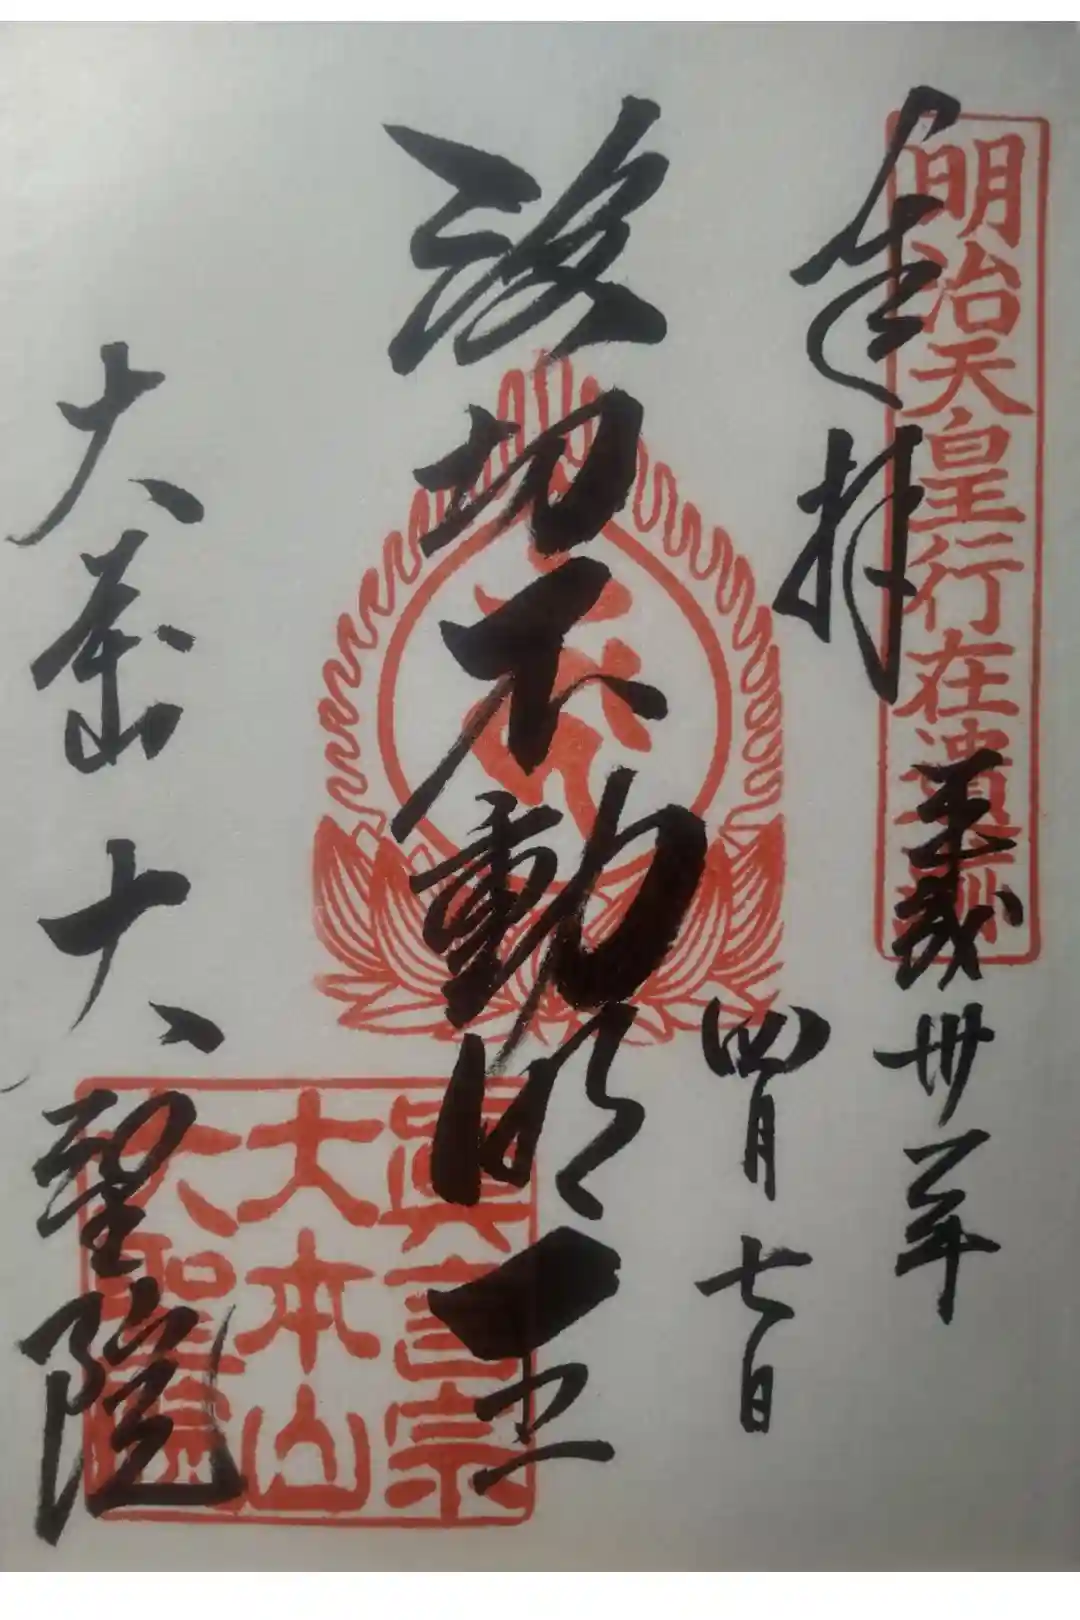 明治天皇行在遺
奉拝
平成卅一年
四月七日
波切不動明王
大本山大聖院
眞言宗
大本山
大聖院